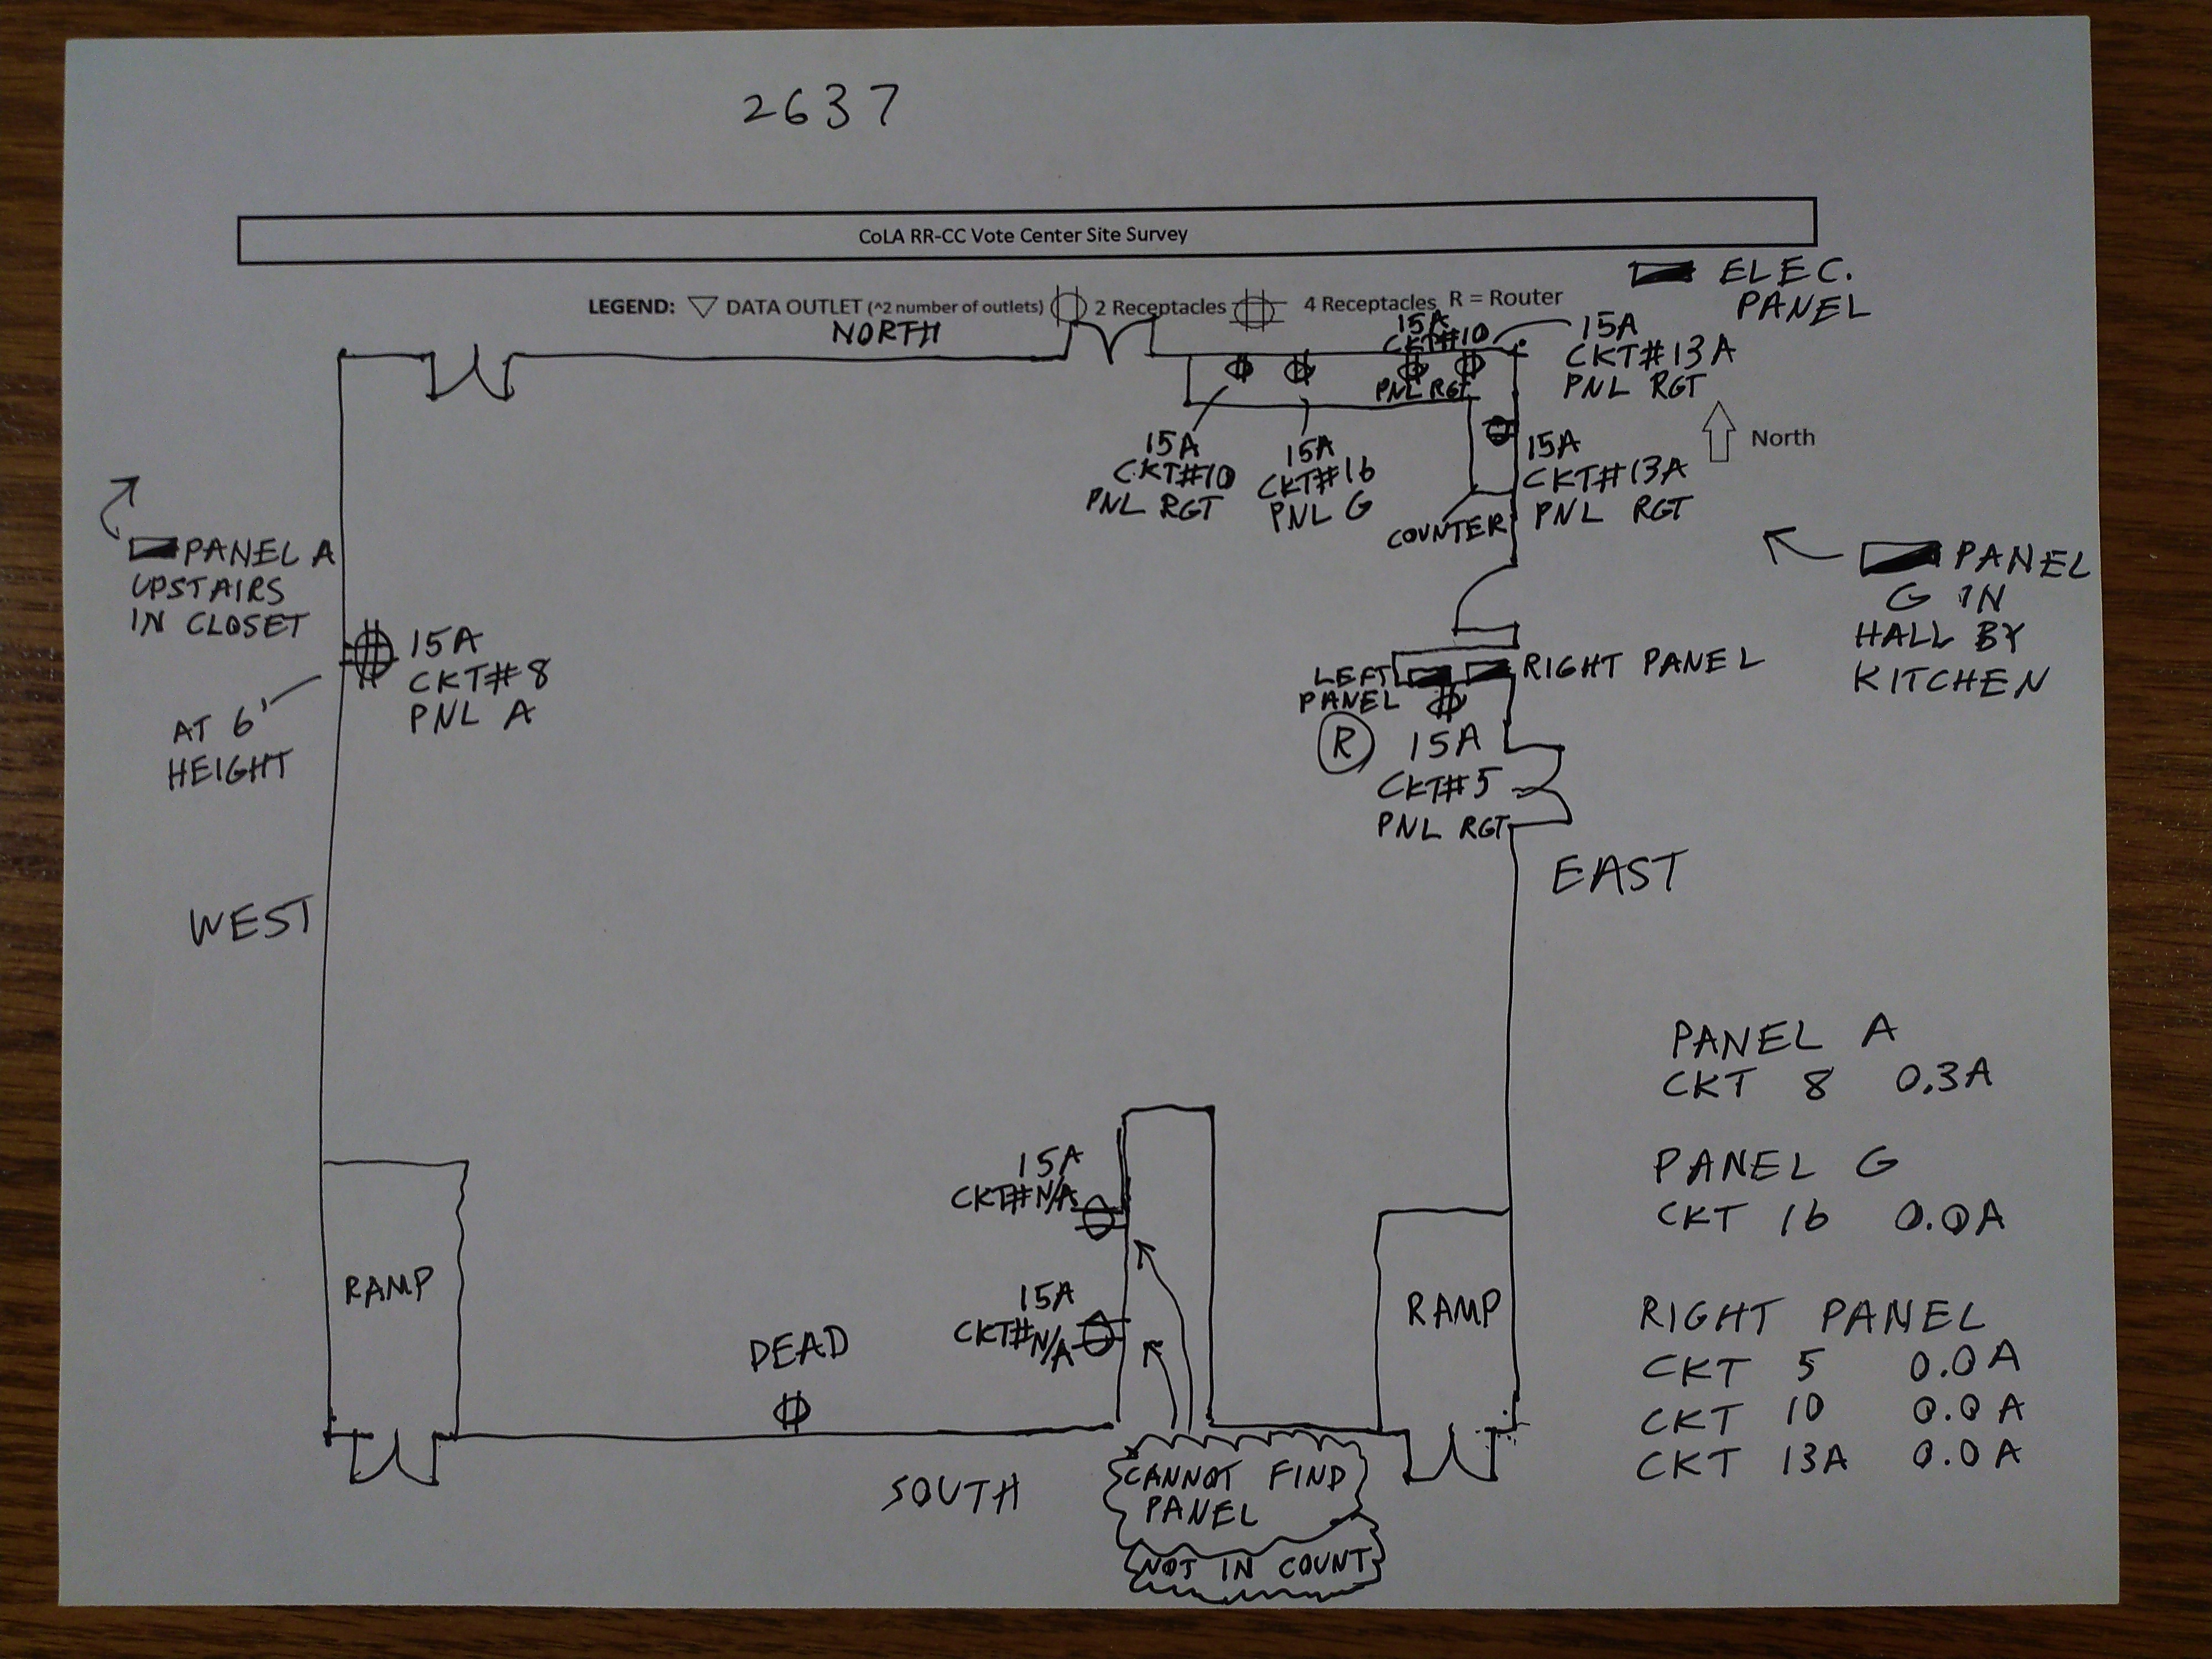 2637
CoLA RR-CC Vote Center Site Survey
LEGEND: DATA OUTLET (^2 number of outlets) 2 Receptacles 4 Receptacles R = Router
ELEC.
PANEL
NORTH
15A
CKT#10
PNL RGT
15A
CKT#13A
PNL RGT
North
15A
CKT#10
PNL RGT
15A
CKT#16
PNL G
15A
CKT#13A
PNL RGT
COUNTER
PANEL A
UPSTAIRS
IN CLOSET
PANEL
G IN
HALL BY
KITCHEN
15A
CKT#8
PNL A
AT 6'
HEIGHT
LEFT
PANEL
RIGHT PANEL
R
15A
CKT#5
PNL RGT
WEST
EAST
PANEL A
CKT 8 0.3A
PANEL G
CKT 16 0.0A
RIGHT PANEL
CKT 5 0.0A
CKT 10 0.0A
CKT 13A 0.0A
15A
CKT#N/A
15A
CKT#N/A
RAMP
RAMP
DEAD
SOUTH
CANNOT FIND
PANEL
NOT IN COUNT